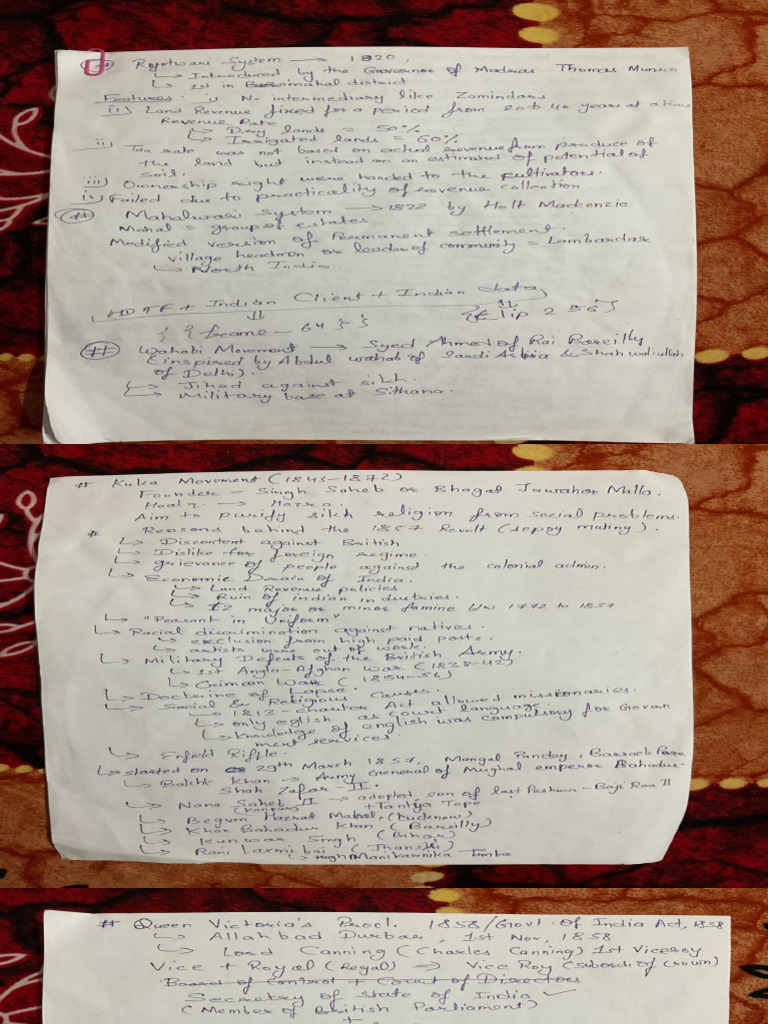 # Ryotwari System → 1820.
↳ Introduced by the Governor of Madras Thomas Munro
↳ 1st in Baramahal district
Features: i) No intermediary like Zamindars
ii) Land Revenue fixed for a period from 20 to 40 years at a time
Revenue Rate
↳ Dry lands = 50%
↳ Irrigated lands = 60%
ii) Tax rate was not based on actual revenue from produce of
the land but instead on an estimated of potential of
soil.
iii) Ownership right were handed to the cultivators.
iv) Failed due to practicality of revenue collection.
## Mahalwari System → 1822 by Holt Mackenzie
Mahal = group of estates
Modified version of Permanent settlement.
village headman or leader of community = Lambardar
↳ North India
HDTF + Indian Client + Indian data
{ { frame - 64 } } { clip 256 }
## Wahabi Movement → Syed Ahmed of Rai Bareilly
(inspired by Abdul wahab of Saudi Arbia & Shah waliullah
of Delhi).
↳ Jihad against sikh.
↳ Military base at Sithana.
# Kuka Movement (1845-1872)
Founder - Singh Saheb or Bhagat Jawahar Malla.
Headq. → Hazra.
Aim to purify sikh religion from social problems.
# Reasons behind the 1857 Revolt (sepoy mutiny).
↳ Discontent against British
↳ Dislike for foreign regime.
↳ grievance of people against the colonial admin.
↳ Economic Drain of India.
↳ Land Revenue policies
↳ Ruin of indian industries.
↳ 12 major or minor famine b/w 1772 to 1857
↳ "Peasant in Uniform"
↳ Racial discrimination against natives.
↳ exclusion from high paid posts.
↳ artists were out of work.
↳ Military Defeats of the British Army.
↳ 1st Anglo-Afghan War (1838-42)
↳ Crimean War (1854-56)
↳ Doctrine of Lapse.
↳ Social & Religious Causes.
↳ 1813-charter Act allowed missionaries.
↳ only eglish as court language.
↳ knowledge of english was compulsory for Govern
ment services.
↳ Enfield Riffle.
↳ started on 29th March 1857, Mangal Pandey, Barrackpore
↳ Bakht Khan → Army General of Mughal emperor Bahadur
Shah Zafar-II.
↳ Nana Saheb II → adopted son of last Peshwa - Baji Rao II
(Kanpur) + Tantya Tope
↳ Begum Hazrat Mahal, (Lucknow)
↳ Khan Bahadur Khan (Bareilly)
↳ Kunwar Singh (Bihar)
↳ Rani Laxmi bai (Jhansi)
↳ Manikarnika Tambe
# Queen Victoria's Procl. 1858/Govt. of India Act, 1858
↳ Allahbad Durbar, 1st Nov, 1858
↳ Lord Canning (Charles Canning) 1st Viceroy
Vice + Royal (Regal) → Vice Roy (subord. of crown)
Board of Control + Court of Directors
Secretary of state of India ✓
(Member of British Parliament)
+